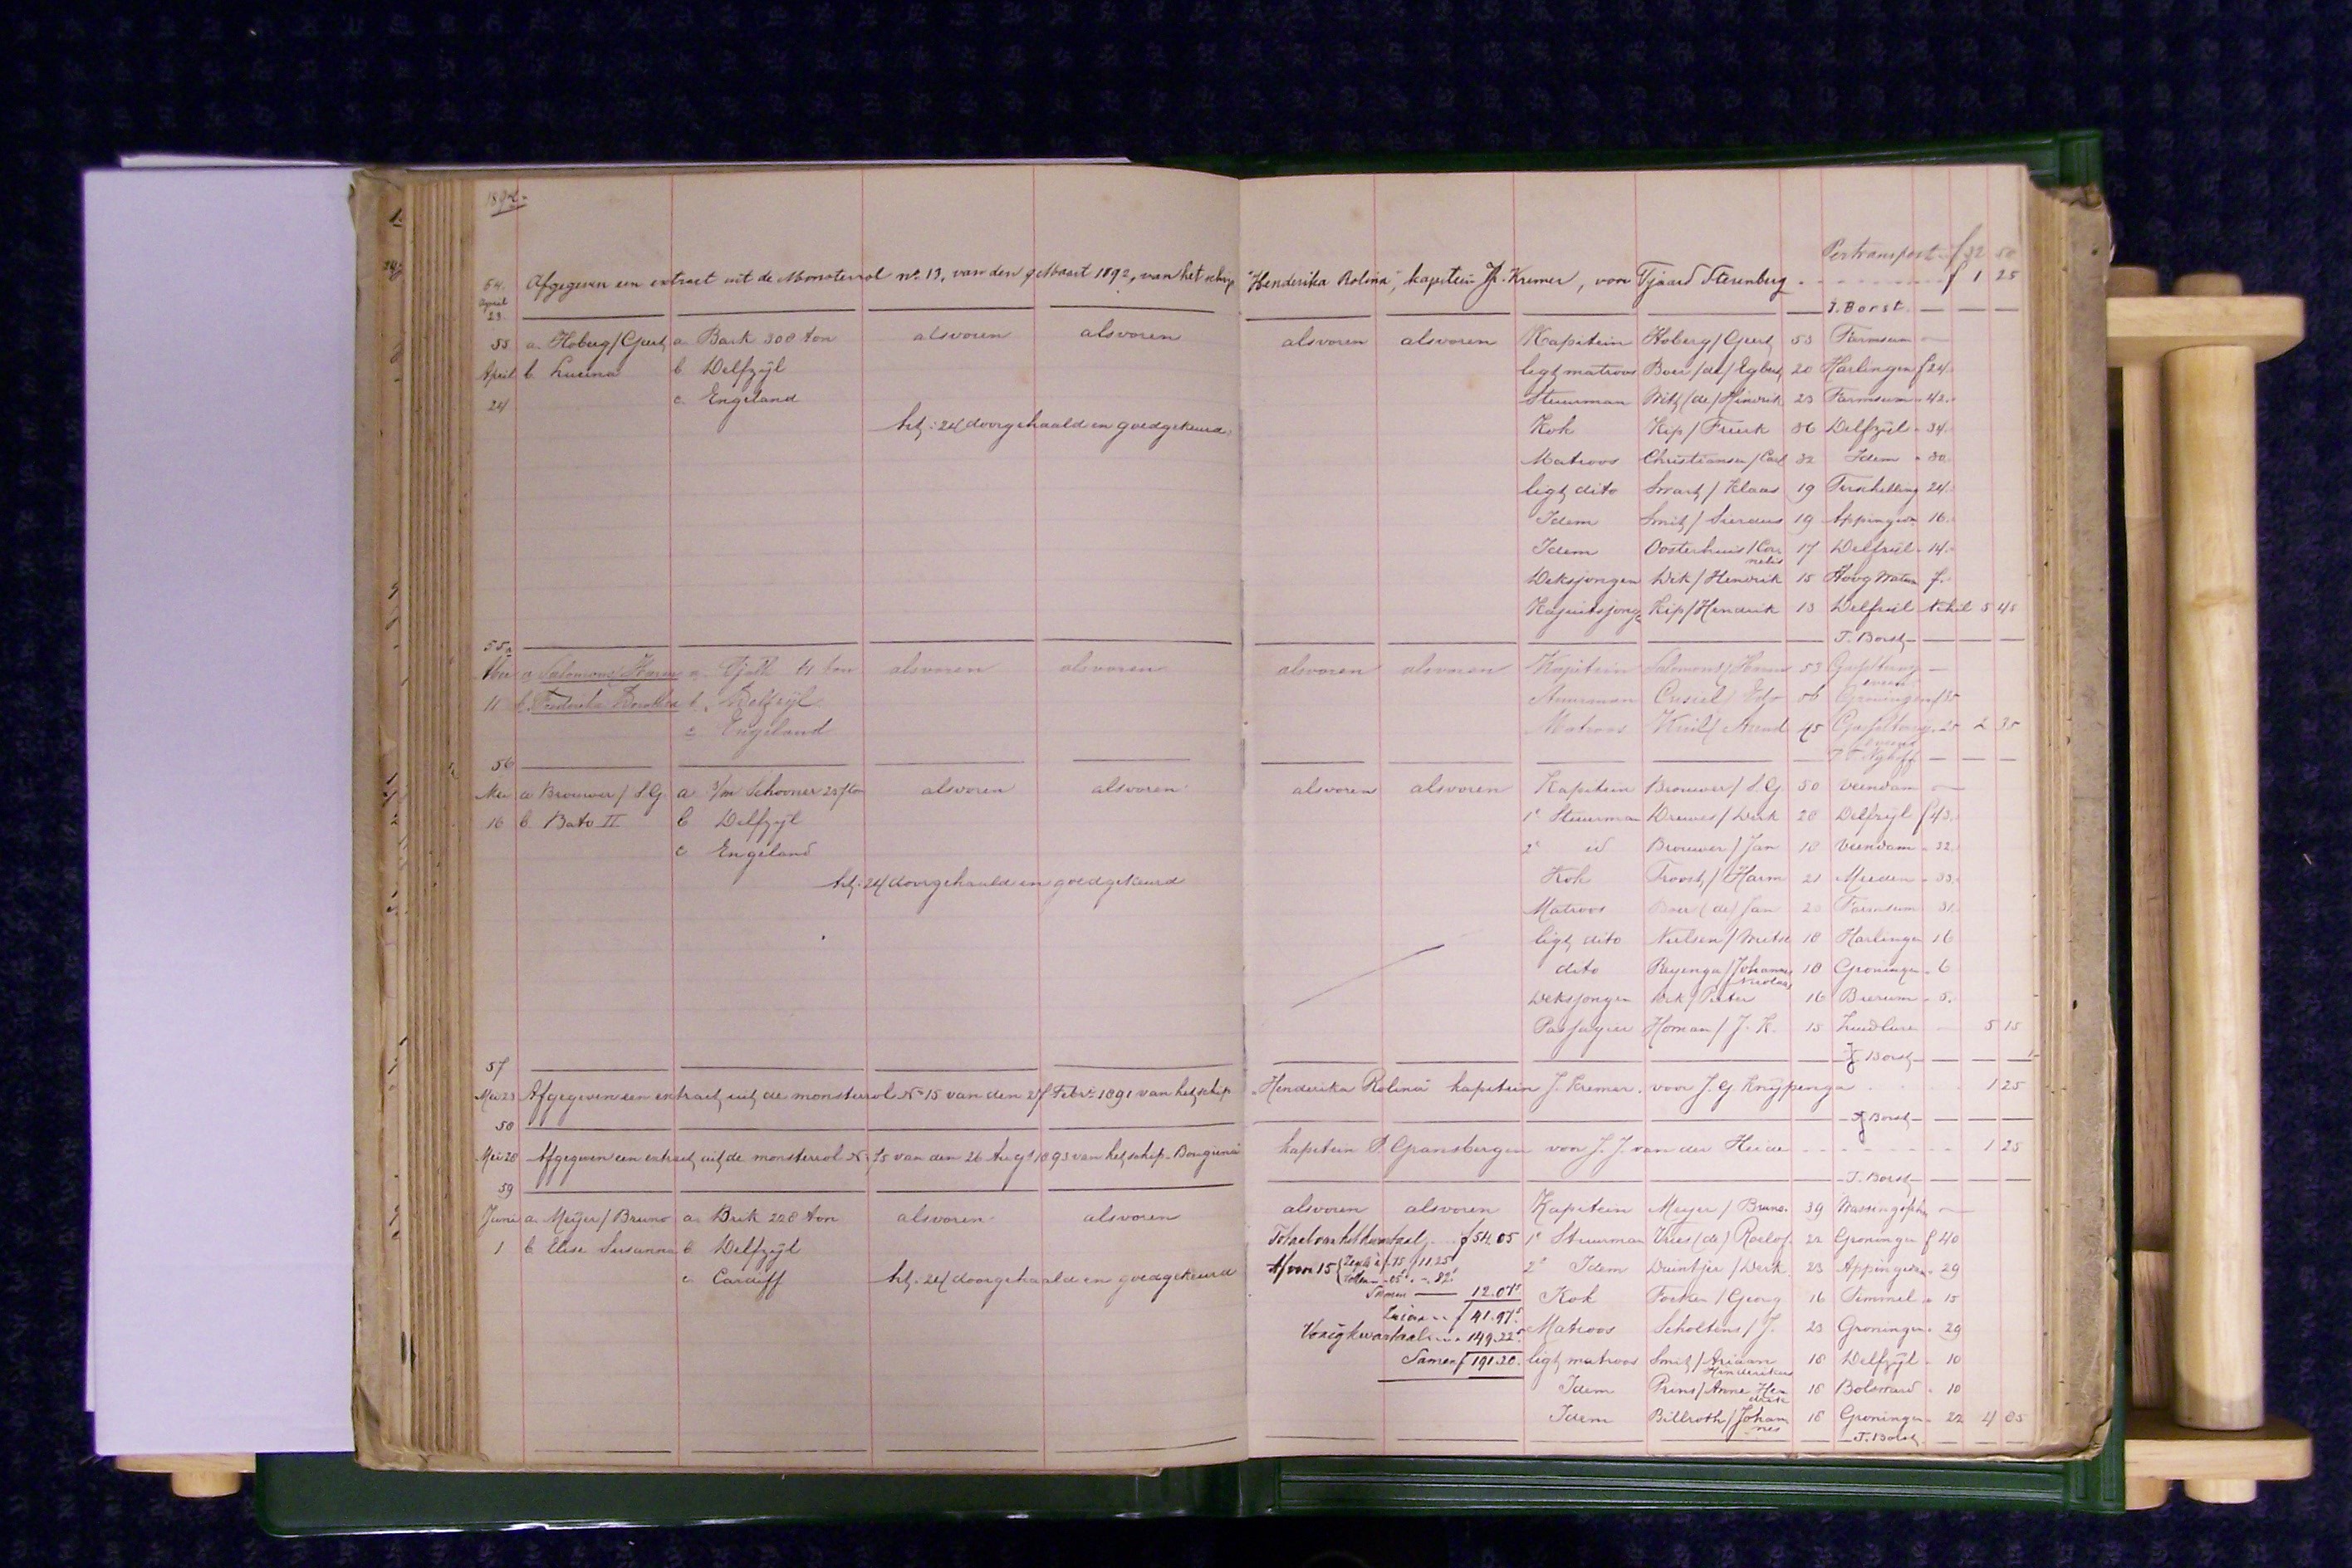 Pertransport f 32 50
54. Afgegeven een extract uit de Monsterrol no. 13, van den 9 Maart 1892, van het schip "Henderika Rolina", kapitein J. Kremer, voor Tjaard Sterenberg f 1 25
April 23. J. Borst
55 a. Hoberg / Geert a Bark 308 ton alsvoren alsvoren alsvoren alsvoren Kapitein Hoberg / Geert 53 Farmsum —
April b. Lucina b Delfzijl ligt matroos Boer / de / Egbert 20 Harlingen f 24.
24 c. Engeland Stuurman Wit / de / Hindrik 23 Farmsum - 42.
24 doorgehaald en goedgekeurd Kok Kip / Freerk 36 Delfzijl - 34.
Matroos Christiansen / Carl 32 Idem - 30.
ligt dito Swart / Klaas 19 Terschelling 24.
Idem Smit / Sierdus 19 Appingedam 16.
Idem Oosterhuis / Cornelis 17 Delfzijl - 14.
Deksjongen Dek / Hendrik 15 Hoog Watum 7.
Kajuitsjong Kip / Hendrik 13 Delfzijl nihil 5 45
55a J. Borst
Mei a Salomons / Harm a. Tjalk 41 ton alsvoren alsvoren alsvoren alsvoren Kapitein Salomons / Harm 53
11 b. Frederika b. Delfzijl Stuurman 56 Groningen f 30
c Engeland Matroos / Arend 45 25 2 35
56
Mei a Brouwer / S.G. a 3/m Schooner 237 ton alsvoren alsvoren alsvoren alsvoren Kapitein Brouwer / S.G. 50 Veendam —
16 b Bato II b Delfzijl 1e Stuurman Drewes / Derk 28 Delfzijl f 43.
c Engeland 2e id Brouwer / Jan 18 Veendam - 32.
24 doorgehaald en goedgekeurd Kok Troost / Harm 21 Meeden - 33.
Matroos Boer (de) Jan 20 Farmsum 31.
ligt dito Nielsen / 18 Harlingen 16
dito Reyenga / Johannes Nicolaas 18 Groningen - 6
Deksjongen Dek / Pieter 16 Bierum - 5.
Passagier Homan / J. K. 15 Zuidlaren 5 15
57 J. Borst
Mei 23 Afgegeven een extract uit de monsterrol No 15 van den 27 Febr. 1891 van het schip "Henderika Rolina" kapitein J. Kremer. voor J. G Knijpenga 1 25
58 J Borst
Mei 28 Afgegeven een extract uit de monsterrol No 75 van den 26 Augt 1893 van het schip kapitein P. Gransbergen voor J. J. van der Heide 1 25
59 J. Borst
Juni a. Meijer / Bruno a. Brik 228 ton alsvoren alsvoren alsvoren alsvoren Kapitein Meijer / Bruno 39 —
1 b Elise Susanna b Delfzijl Totaal van het kwartaal f 54.05 1e Stuurman Vries (de) Roelof 22 Groningen f 40
c. Cardiff 24 doorgehaald en goedgekeurd Af voor 15 11.25 2e Idem Duintjer / Derk 23 Appingedam - 29
Samen — 12.07 5 Kok Focken / Georg 16 Simmel - 15
f 41.97 5 Matroos Scholtens / J. 23 Groningen - 29
Vorig kwartaal 149.22 5
Samen f 191.20. ligt matroos Smit / Ariaan Hinderikus 18 Delfzijl - 10
Idem Prins / Anne Hendrik 18 Bolsward - 10
Idem Billroth / Johannes 18 Groningen - 22 4 85
J. Borst